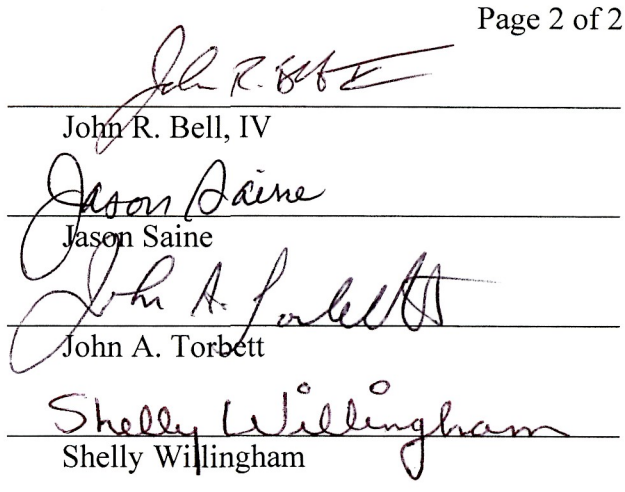 Page 2 of 2
John R. Bell IV
John R. Bell, IV
Jason Saine
Jason Saine
John A. Torbett
John A. Torbett
Shelly Willingham
Shelly Willingham